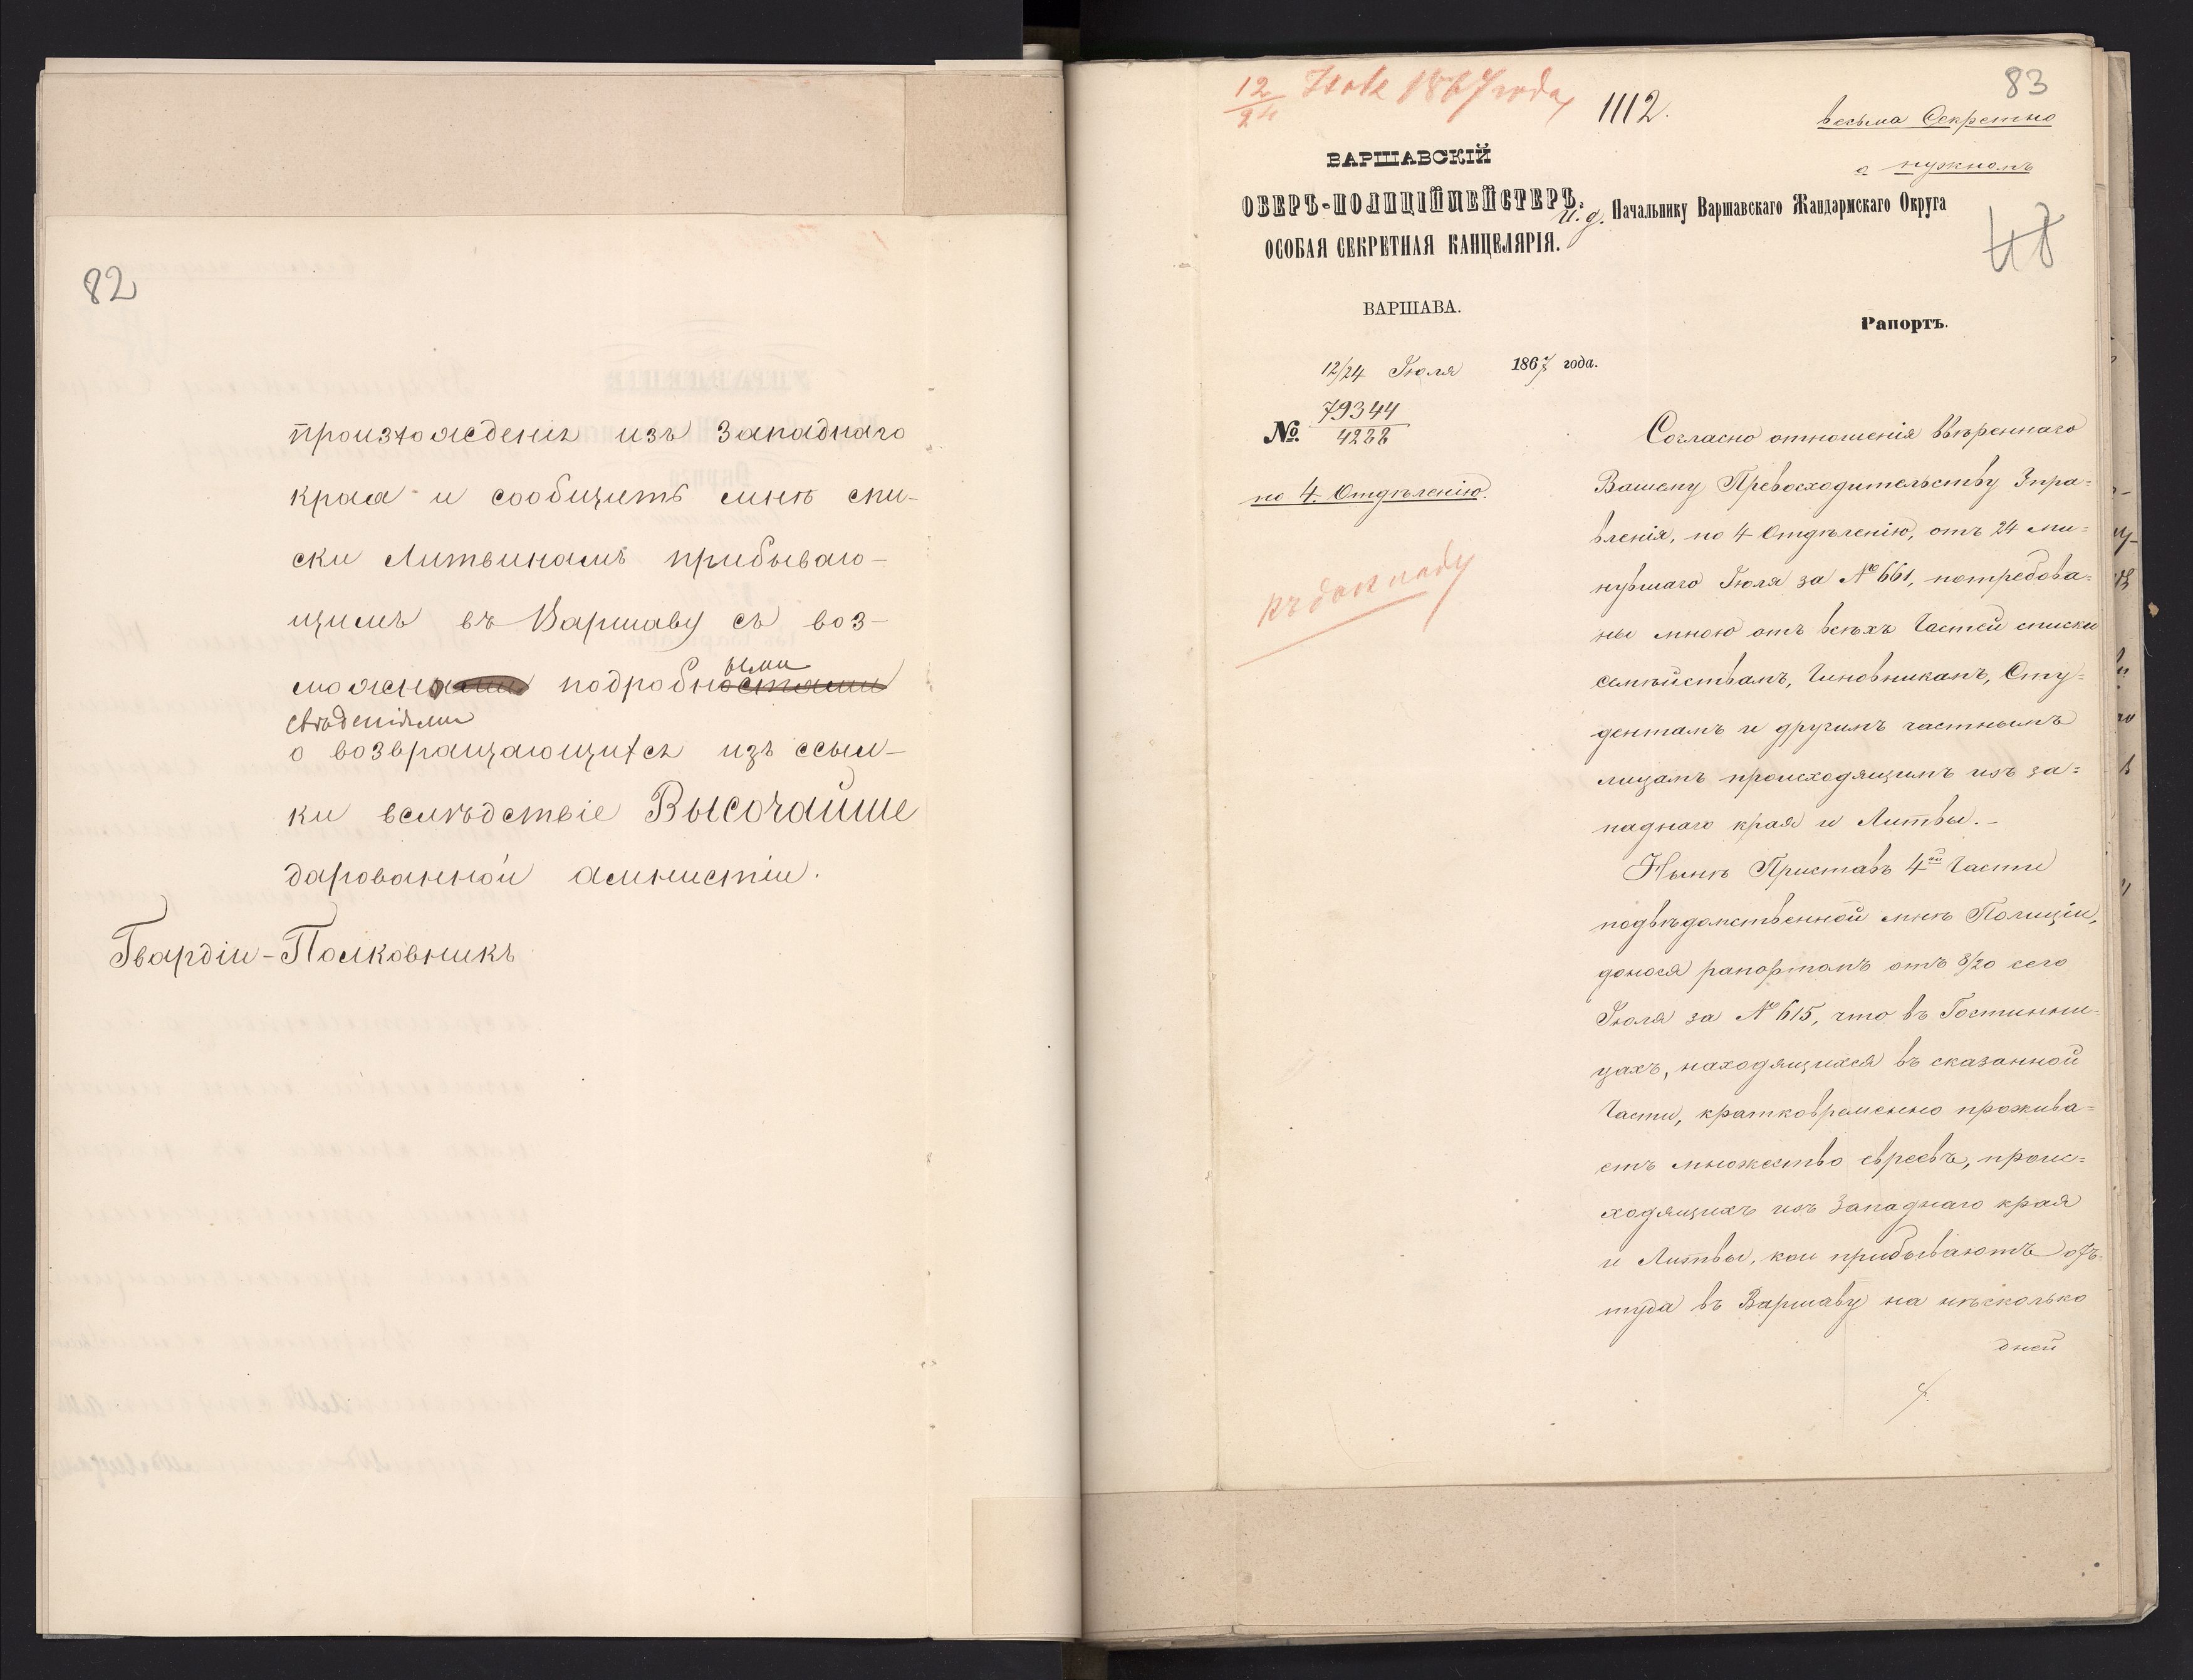 82
произхожденія изъ Западнаго
края и сообщить мнѣ спи-
ски Литвинамъ прибываю-
щимъ въ Варшаву съ воз-
ными
можно подробностями
свѣденіями
о возвращающихся изъ ссыл-
ки вслѣдствіе Высочайше
дарованной амнистіи.
Гвардіи-Полковникъ
83
12/24 Іюля 1867 года
1112.
весьма Секретно
о нужномъ
ВАРШАВСКІЙ
ОБЕРЪ-ПОЛИЦІЙМЕЙСТЕРЪ.
ОСОБАЯ СЕКРЕТНАЯ КАНЦЕЛЯРІЯ.
И. д. Начальнику Варшавскаго Жандармскаго Округа
ВАРШАВА.
Рапортъ.
12/24 Іюля 1867 года.
№ 79344/4288
по 4. Отдѣленію.
къ докладу
Согласно отношенія ввѣреннаго
Вашему Превосходительству Упра=
вленія, по 4 Отдѣленію, отъ 24 ми=
нувшаго Іюля за № 661, потребова=
ны мною отъ всѣхъ Частей списки
семѣйствамъ, Чиновникамъ, Сту=
дентамъ и другимъ частнымъ
лицамъ происходящимъ изъ за=
паднаго края и Литвы.-
Нынѣ Приставъ 4ой Части
подвѣдомственной мнѣ Полиціи,
донося рапортомъ отъ 8/20 сего
Іюля за № 615, что въ Гостинни=
цахъ, находящихся въ сказанной
Части, кратковременно прожива=
етъ множество евреевъ, проис=
ходящихъ изъ Западнаго края
и Литвы, кои прибываютъ отъ=
туда въ Варшаву на нѣсколько
дней